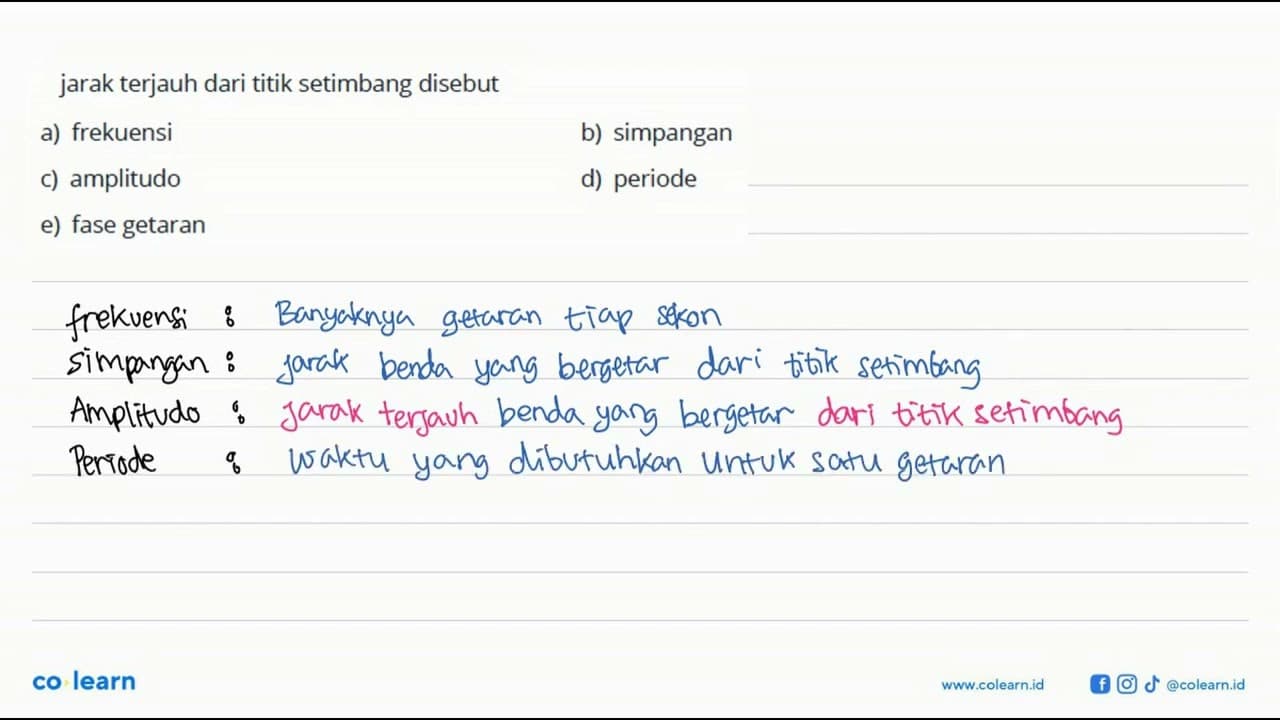 jarak terjauh dari titik setimbang disebut
a) frekuensi b) simpangan
c) amplitudo d) periode
e) fase getaran
frekuensi : Banyaknya getaran tiap sekon
simpangan : jarak benda yang bergetar dari titik setimbang
Amplitudo : jarak terjauh benda yang bergetar dari titik setimbang
Periode : waktu yang dibutuhkan untuk satu getaran
co learn www.colearn.id @colearn.id